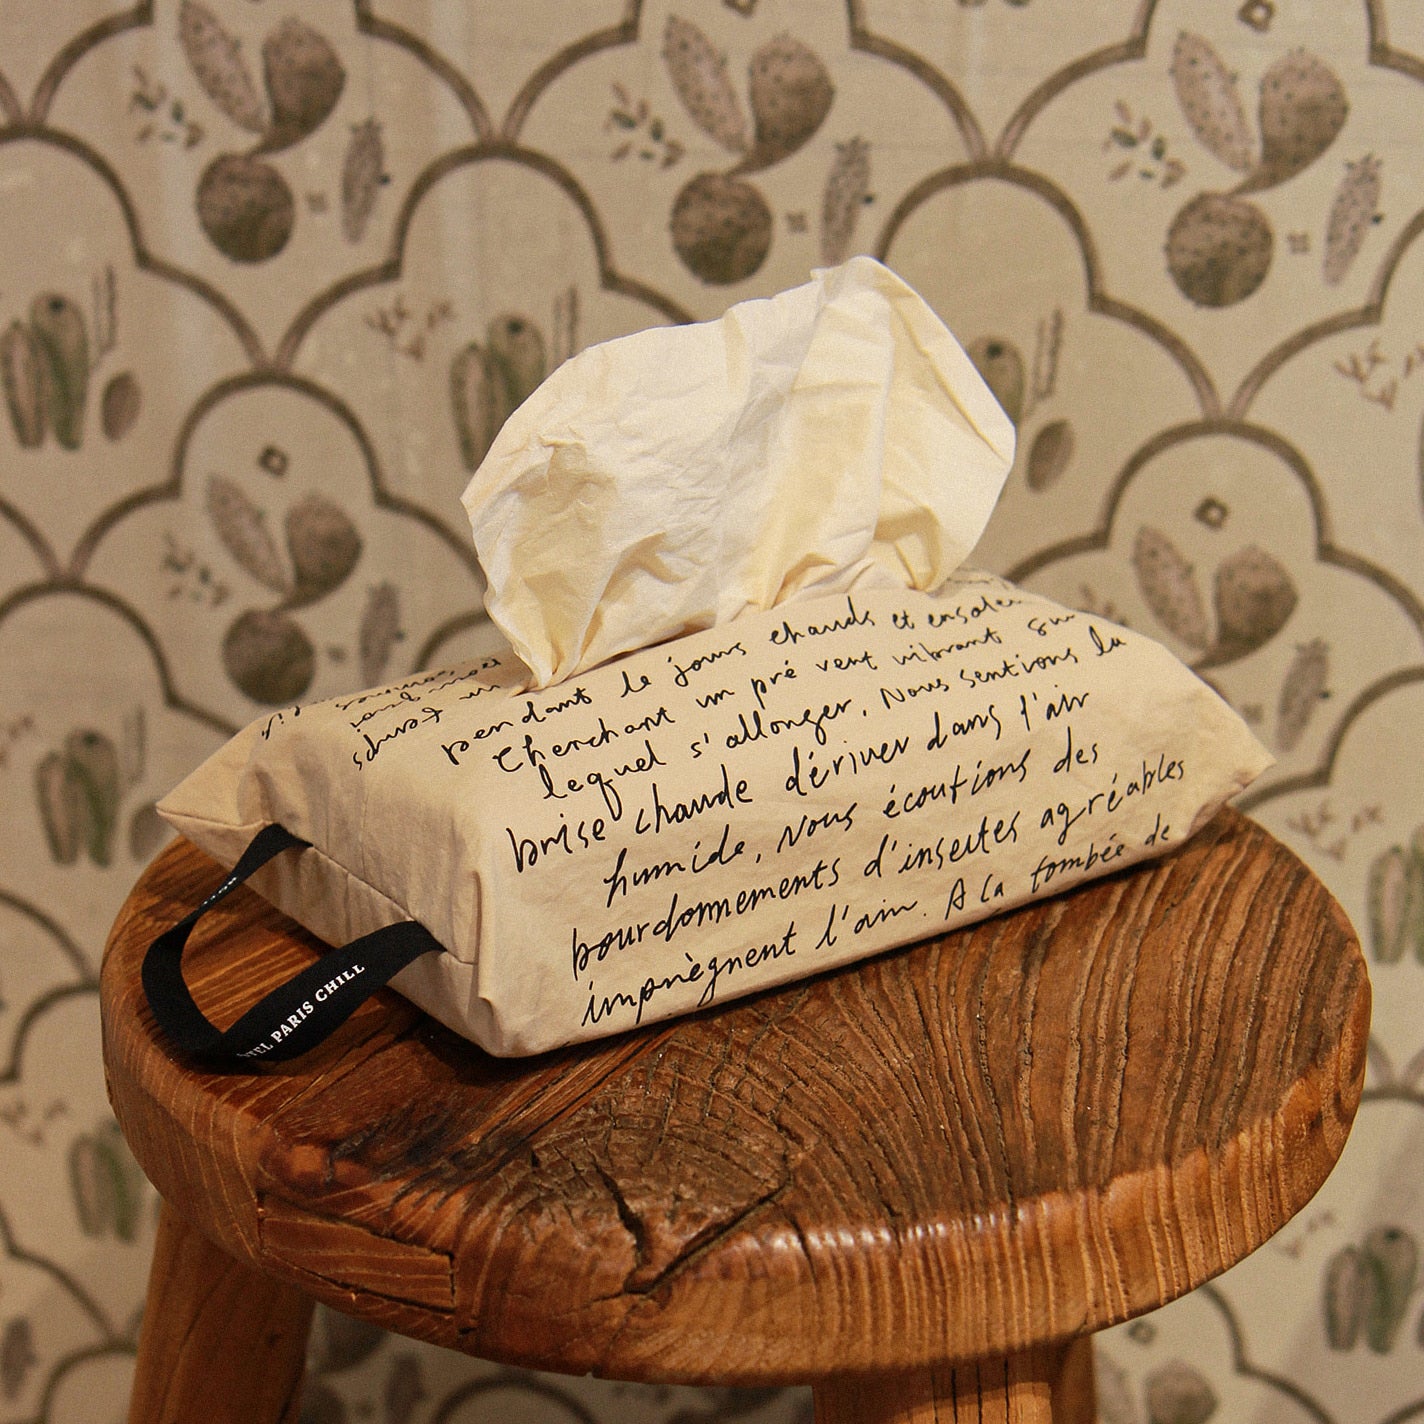 pendant le jours chauds et
Cherchant un pré vent vibrant sur
lequel s'allonger. Nous sentions la
brise chaude dériver dans l'air
humide, Nous écoutions des
bourdonnements d'insectes agréables
imprègnent l'air. A la tombée de
TEL PARIS CHILL